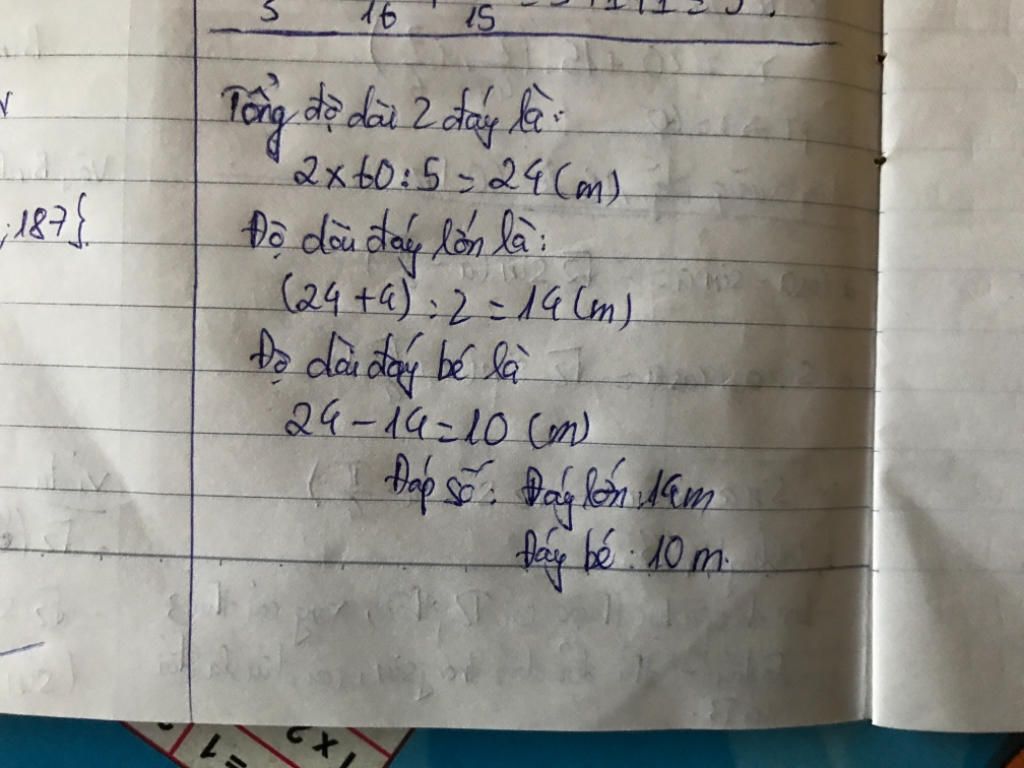 5 16 15
Tổng độ dài 2 đáy là:
2 x 60 : 5 = 24 (m)
; 187}.
Độ dài đáy lớn là:
(24 + 4) : 2 = 14 (m)
Độ dài đáy bé là
24 - 14 = 10 (m)
Đáp số: Đáy lớn: 14m
Đáy bé: 10m.
1 x 2
= 1